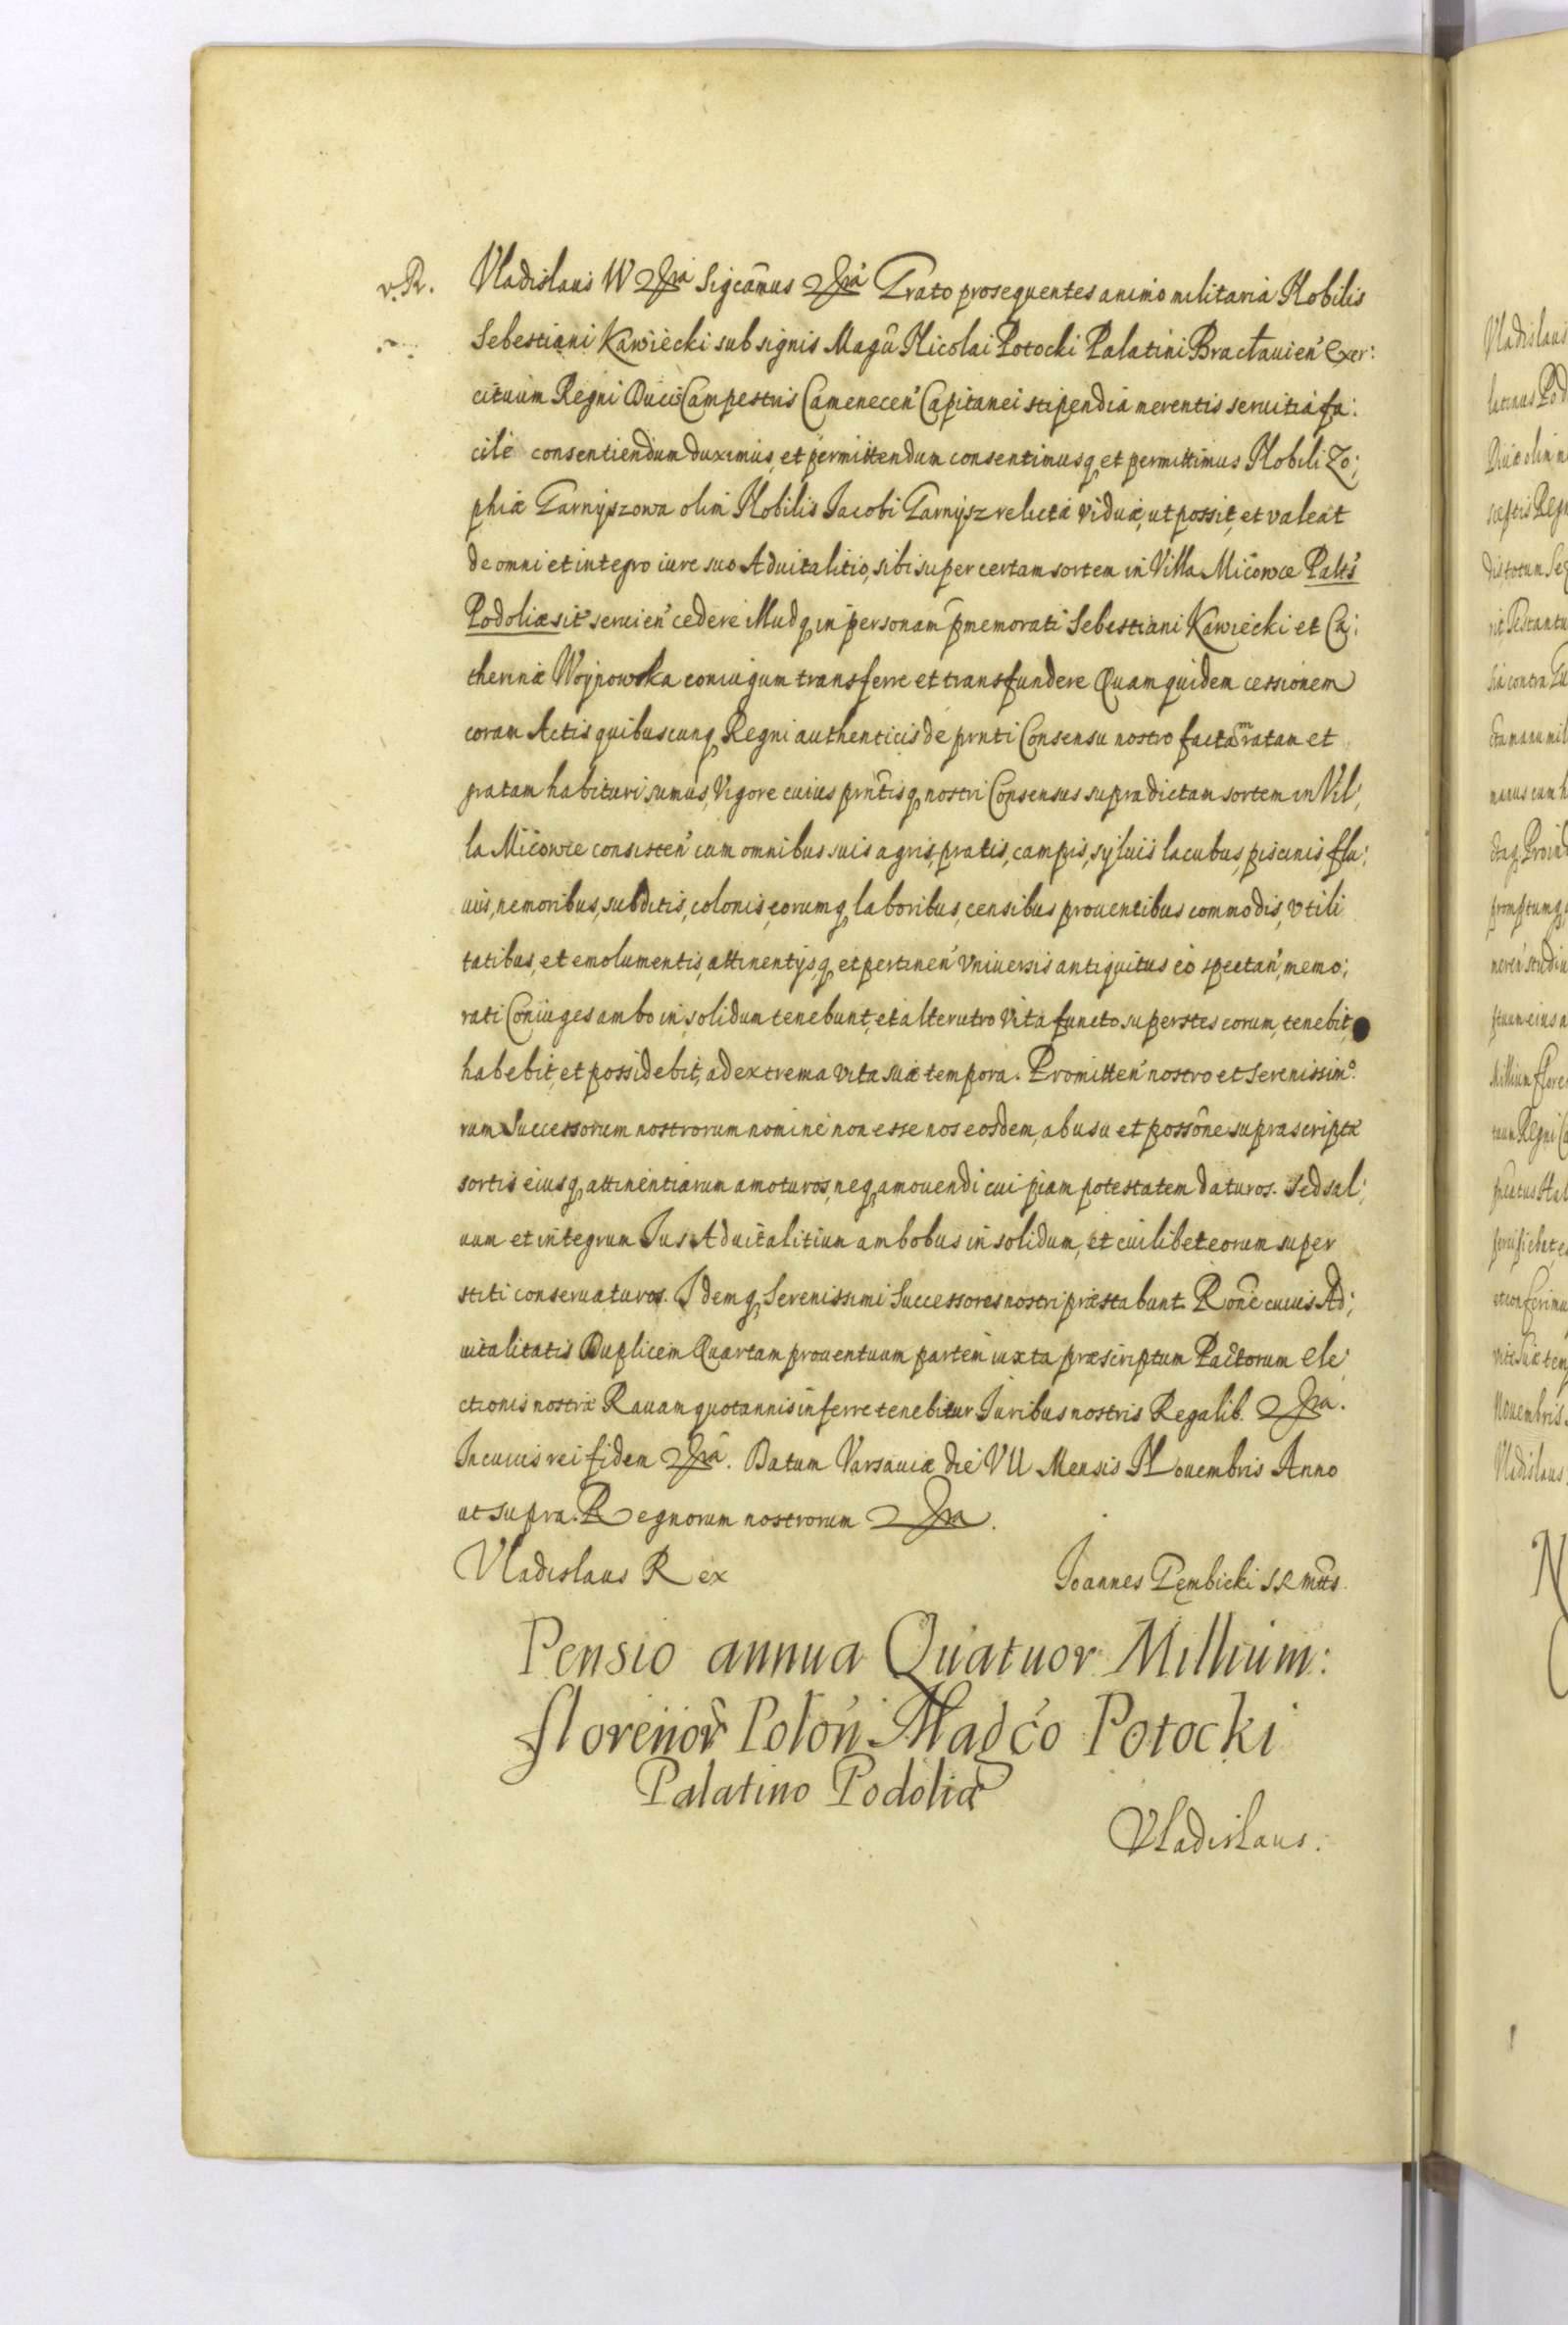 v. R.
Vladislaus IV &ra Sigcãmus &ra Grato prosequentes animo militaria Nobilis
Sebestiani Kawiecki sub signis Magci Nicolai Potocki Palatini Bractauien̄ Exer:
cituum Regni Ducis Campestris Camenecen̄ Capitanei stipendia merentis seruitia fa:
cile consentiendum duximus, et permittendum consentimusq et permittimus Nobili Zo:
phiæ Garnyszowa olim Nobilis Jacobi Garnysz relictæ viduæ, ut possit, et valeat
de omni et integro iure suo Aduitalitio, sibi super certam sortem in Villa Micowce Palts
Podoliæ sit seruien̄ cedere illudq in personam p̄memorati Sebestiani Kawiecki et Ca:
therinæ Woynowska coniugum transferre et transfundere Quam quidem cessionem
coram Actis quibuscunq Regni authenticis de pr̃nti Consensu nostro factam ratam et
gratam habituri sumus, Vigore cuius pr̃ntisq nostri Consensus supradictam sortem in Vil:
la Micowce consisten̄ cum omnibus suis agris, pratis, campis, syluis lacubus, piscinis, flu:
uiis, nemoribus, subditis, colonis, eorumq laboribus, censibus prouentibus commodis, vtili
tatibus, et emolumentis, attinentijsq et pertinen̄ vniuersis antiquitus eò spectan̄, memo:
rati Coniuges ambo in solidum tenebunt, et alterutro vita functo superstes eorum, tenebit,
habebit, et possidebit, ad extrema vita suæ tempora. Promitten̄ nostro et Serenissimo
rum Successorum nostrorum nomine non esse nos eosdem, ab usu et possõne suprascriptæ
sortis eiusq attinentiarum amoturos, neq amouendi cuipiam potestatem daturos. Sed sal:
uum et integrum Jus Aduitalitium ambobus in solidum, et cuilibet eorum super
stiti conseruaturos. Idemq Serenissimi Successores nostri præstabunt. Rone cuius Ad:
uitalitatis Duplicem Quartam prouentuum partem iuxta præscriptum Pactorum Ele:
ctionis nostræ Rauam quotannis inferre tenebitur Juribus nostris Regalib. &ra.
In cuius rei fidem &ra. Datum Varsauiæ die VII Mensis Nouembris Anno
ut supra. Regnorum nostrorum &ra.
Vladislaus Rex
Joannes Gęmbicki SR mtts.
Pensio annua Quatuor Millium:
florenor̃ Polon̄ Magco Potocki
Palatino Podoliæ
Vladislaus.